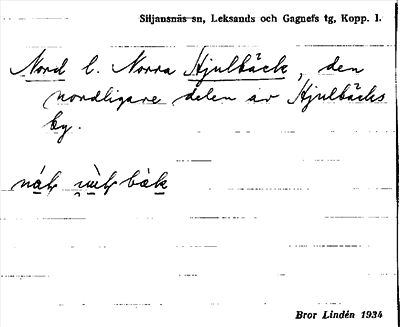 Siljansnäs sn, Leksands och Gagnefs tg, Kopp. l.
Nord l. Norra Hjulbäck, den
nordligare delen av Hjulbäcks
by.
Bror Lindén 1934